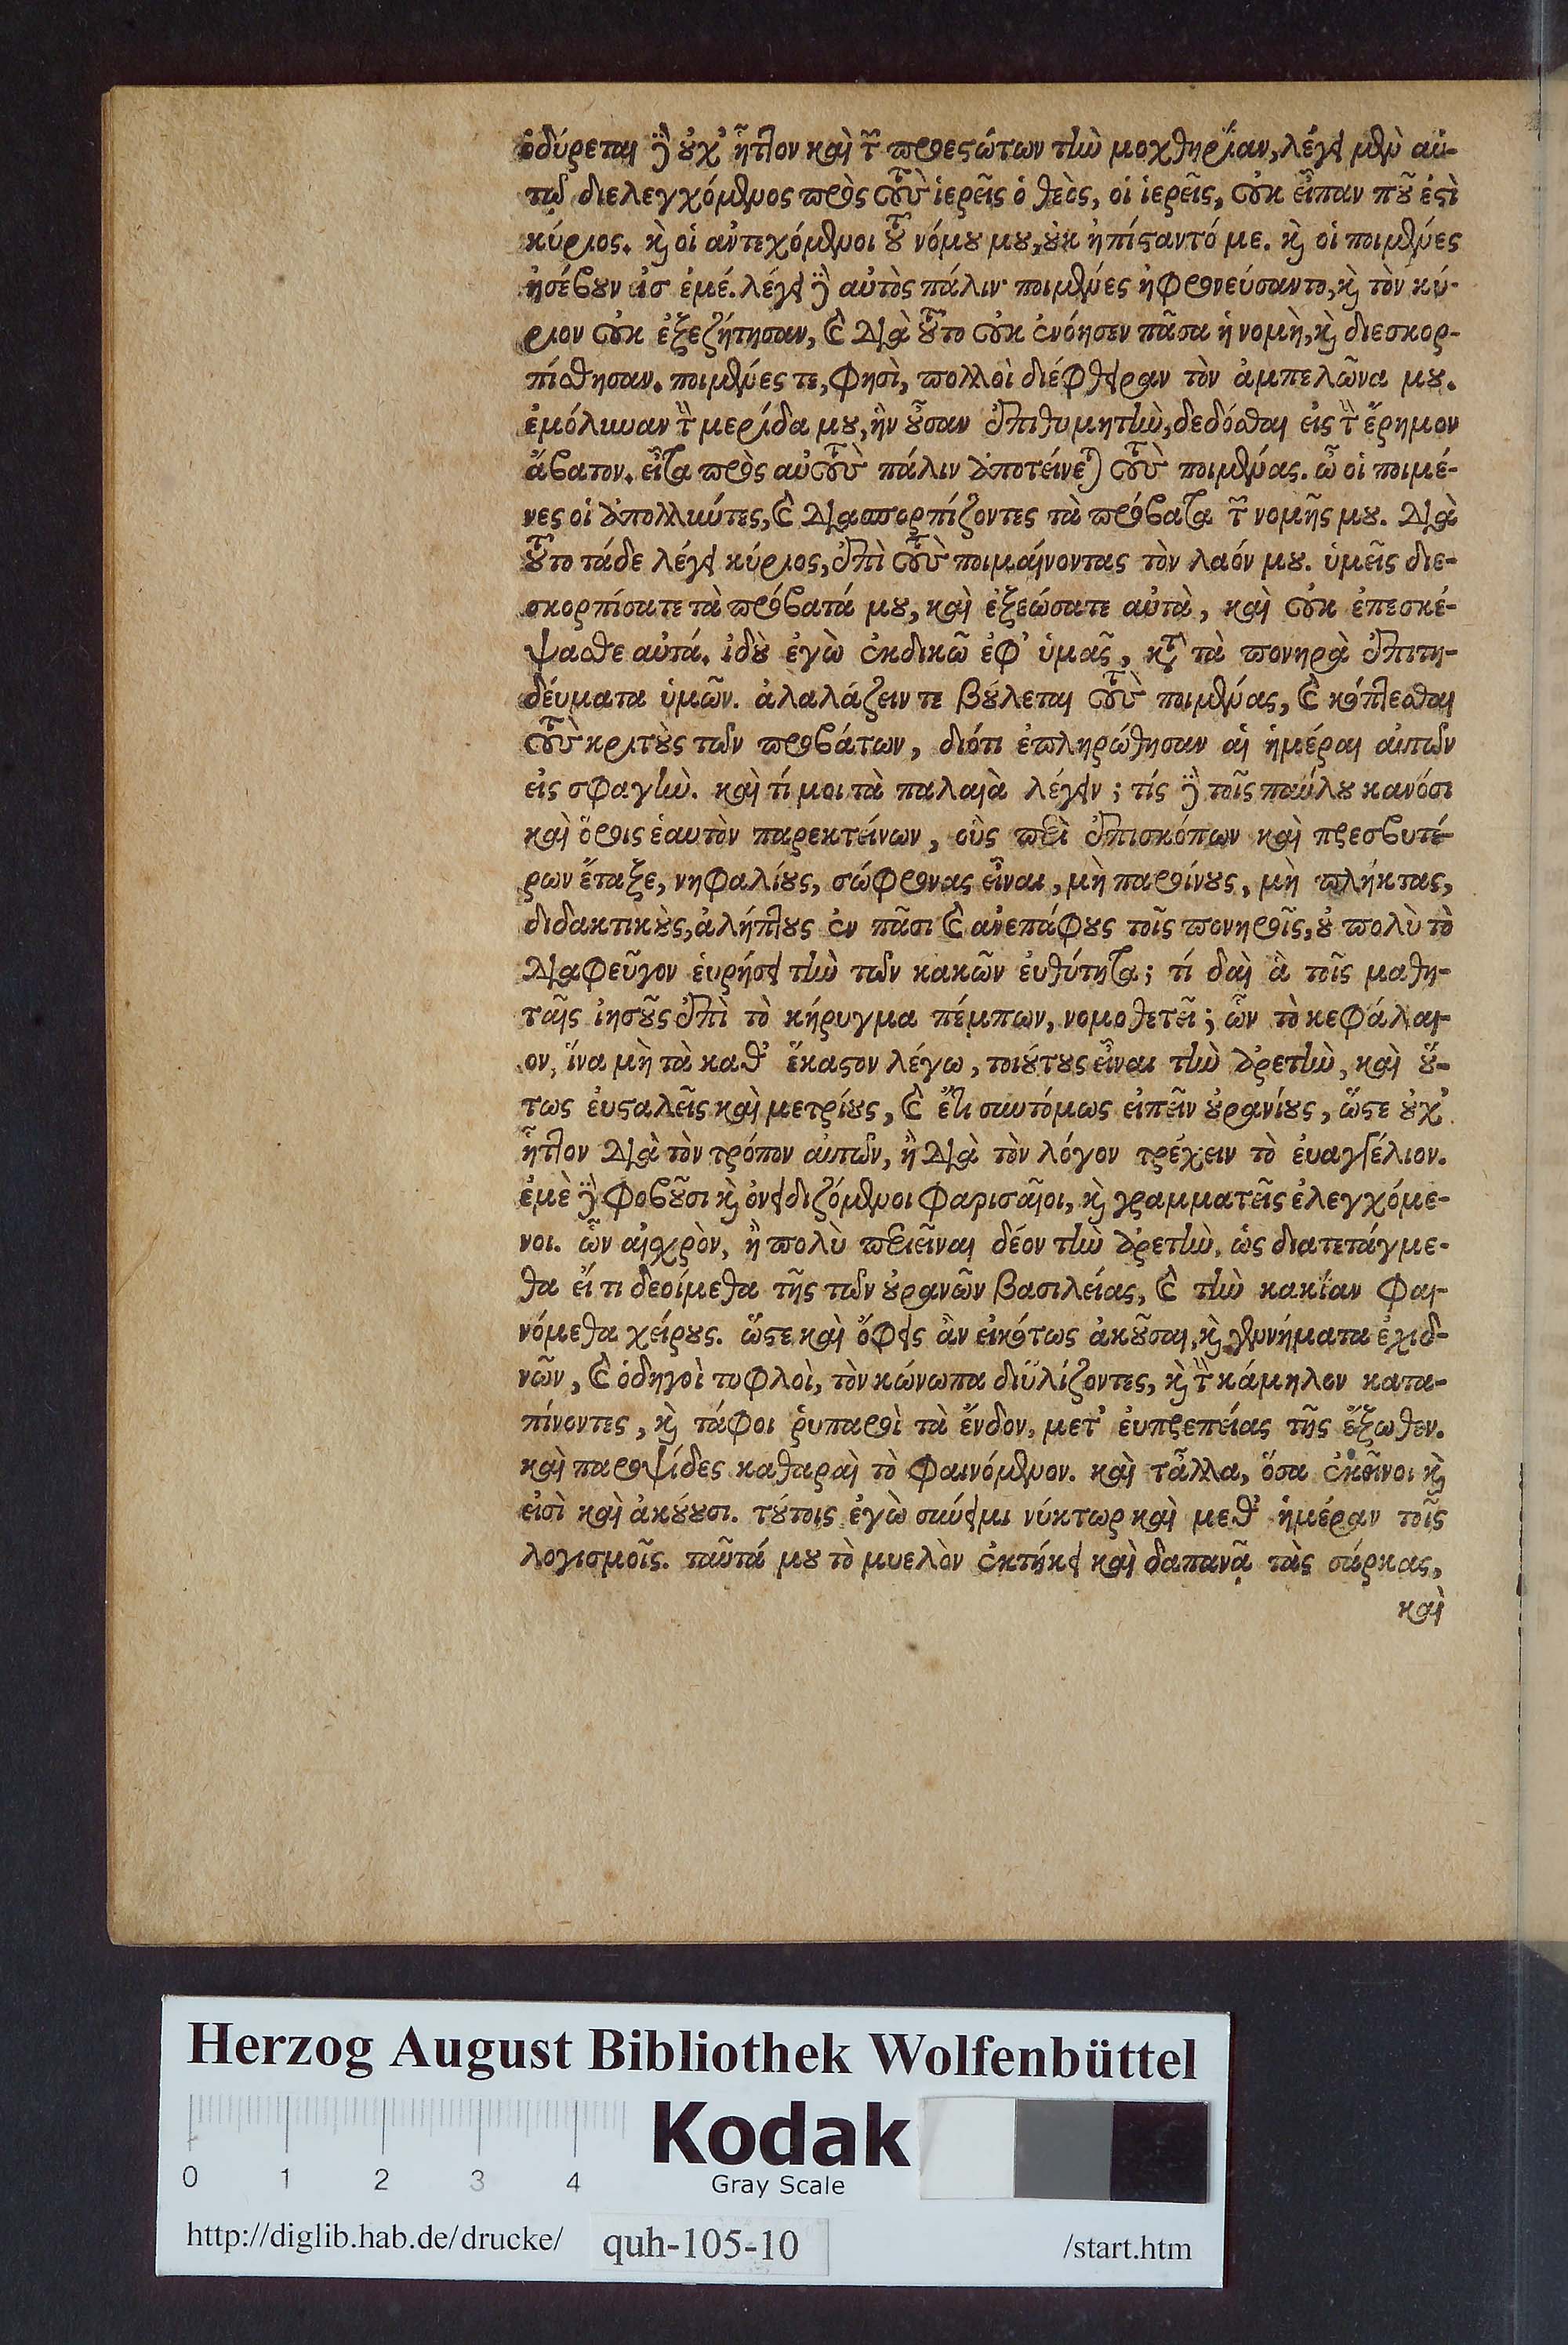 ὀδύρεται γὰρ οὐχ ἧττον καὶ τῶν προεστώτων τὴν μοχθηρίαν, λέγει μὲν αὐ-
τῷ διελεγχόμενος πρὸς τοὺς ἱερεῖς ὁ θεὸς, οἱ ἱερεῖς, οὐκ εἶπαν ποῦ ἐστὶ
κύριος. καὶ οἱ ἀντεχόμενοι τοῦ νόμου μου, οὐκ ἠπίσταντό με. καὶ οἱ ποιμένες
ἠσέβουν εἰσ ἐμέ. λέγει γὰρ αὐτὸς πάλιν· ποιμένες ἠφρονεύσαντο, καὶ τὸν κύ-
ριον οὐκ ἐξεζήτησαν, καὶ διὰ τοῦτο οὐκ ἐνόησεν πᾶσα ἡ νομὴ, καὶ διεσκορ-
πίσθησαν. ποιμένες τε, φησὶ, πολλοὶ διέφθειραν τὸν ἀμπελῶνα μου.
ἐμόλυναν τὴν μερίδα μου, ἣν οὖσαν ἐπιθυμητὴν, δεδόσθαι εἰς τὴν ἔρημον
ἄβατον. εἶτα πρὸς αὐτοὺς πάλιν ἀποτείνεται τοὺς ποιμένας. ὦ οἱ ποιμέ-
νες οἱ ἀπολλύντες, καὶ διασπορπίζοντες τὰ πρόβατα τῆς νομῆς μου. διὰ
τοῦτο τάδε λέγει κύριος, ἐπὶ τοὺς ποιμαίνοντας τὸν λαόν μου. ὑμεῖς διε-
σκορπίσατε τὰ πρόβατά μου, καὶ ἐξεώσατε αὐτὰ, καὶ οὐκ ἐπεσκέ-
ψασθε αὐτά. ἰδοὺ ἐγὼ ἐκδικῶ ἐφ' ὑμᾶς, κατὰ τὰ πονηρὰ ἐπιτη-
δεύματα ὑμῶν. ἀλαλάζειν τε βούλεται τοὺς ποιμένας, καὶ κόπτεσθαι
τοὺς κριτοὺς τῶν προβάτων, διότι ἐπληρώθησαν αἱ ἡμέραι αὐτῶν
εἰς σφαγὴν. καὶ τί μοι τὰ παλαιὰ λέγειν; τίς γὰρ τοῖς παύλου κανόσι
καὶ ὅροις ἑαυτὸν παρεκτείνων, οὓς περὶ ἐπισκόπων καὶ πρεσβυτέ-
ρων ἔταξε, νηφαλίους, σώφρονας εἶναι, μὴ παροίνους, μὴ πλήκτας,
διδακτικοὺς, ἀλήπτους ἐν πᾶσι καὶ ἀνεπάφους τοῖς πονηροῖς, οὐ πολὺ τὸ
διαφεῦγον εὑρήσει τὴν τῶν κακῶν εὐθύτητα; τί δαὶ ἃ τοῖς μαθη-
ταῖς ἰησοῦς ἐπὶ τὸ κήρυγμα πέμπων, νομοθετεῖ; ὧν τὸ κεφάλαι-
ον, ἵνα μὴ τὰ καθ' ἕκαστον λέγω, τοιούτους εἶναι τὴν ἀρετὴν, καὶ οὕ-
τως εὐσταλεῖς καὶ μετρίους, καὶ ἔτι συντόμως εἰπεῖν οὐρανίους, ὥστε οὐχ'
ἧττον διὰ τὸν τρόπον αὐτῶν, ἢ διὰ τὸν λόγον τρέχειν τὸ εὐαγγέλιον.
ἐμὲ γὰρ φοβοῦσι καὶ ὀνειδιζόμενοι φαρισαῖοι, καὶ γραμματεῖς ἐλεγχόμε-
νοι. ὧν αἰσχρὸν, ἢ πολὺ περιεῖναι δέον τὴν ἀρετὴν, ὡς διατετάγμε-
θα εἴ τι δεοίμεθα τῆς τῶν οὐρανῶν βασιλείας, καὶ τὴν κακίαν φαι-
νόμεθα χείρους. ὥστε καὶ ὄφεις ἂν εἰκότως ἀκοῦσαι, καὶ γεννήματα ἐχιδ-
νῶν, καὶ ὁδηγοὶ τυφλοὶ, τὸν κώνωπα διϋλίζοντες, καὶ τὴν κάμηλον κατα-
πίνοντες, καὶ τάφοι ῥυπαροὶ τὰ ἔνδον, μετ' εὐπρεπείας τῆς ἔξωθεν.
καὶ παροψίδες καθαραὶ τὸ φαινόμενον. καὶ τἆλλα, ὅσα ἐκεῖνοι καὶ
εἰσὶ καὶ ἀκούουσι. τούτοις ἐγὼ σύνειμι νύκτωρ καὶ μεθ' ἡμέραν τοῖς
λογισμοῖς. ταῦτά μου τὸ μυελὸν ἐκτήκει καὶ δαπανᾷ τὰς σάρκας,
καὶ
Herzog August Bibliothek Wolfenbüttel
0 1 2 3 4
Kodak
Gray Scale
http://diglib.hab.de/drucke/ quh-105-10 /start.htm